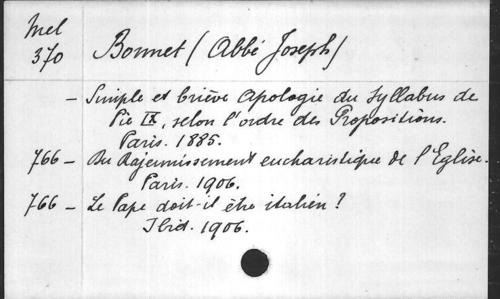 Mel
370 Bonnet (Abbé Joseph)
- Simple et briève Apologie du Syllabus de
Pie IX, selon l'ordre des Propositions.
Paris. 1885.
766 - Du Rajeunissement eucharistique de l'Eglise.
Paris. 1906.
766 - Le Pape doit-il être italien?
Ibid. 1906.